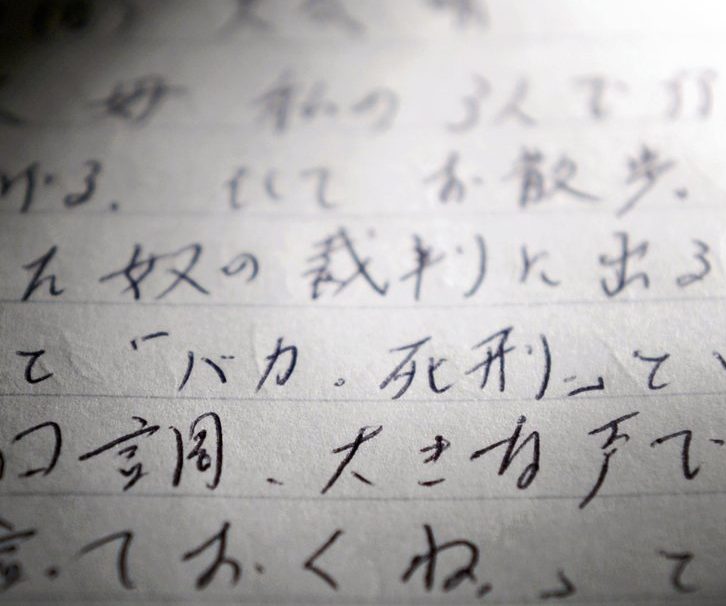 母 私の 3人で
ける. そして お散歩.
た 奴の 裁判に 出る
て 「バカ。死刑」て
口調、大きな声で
言っておくね.」 て